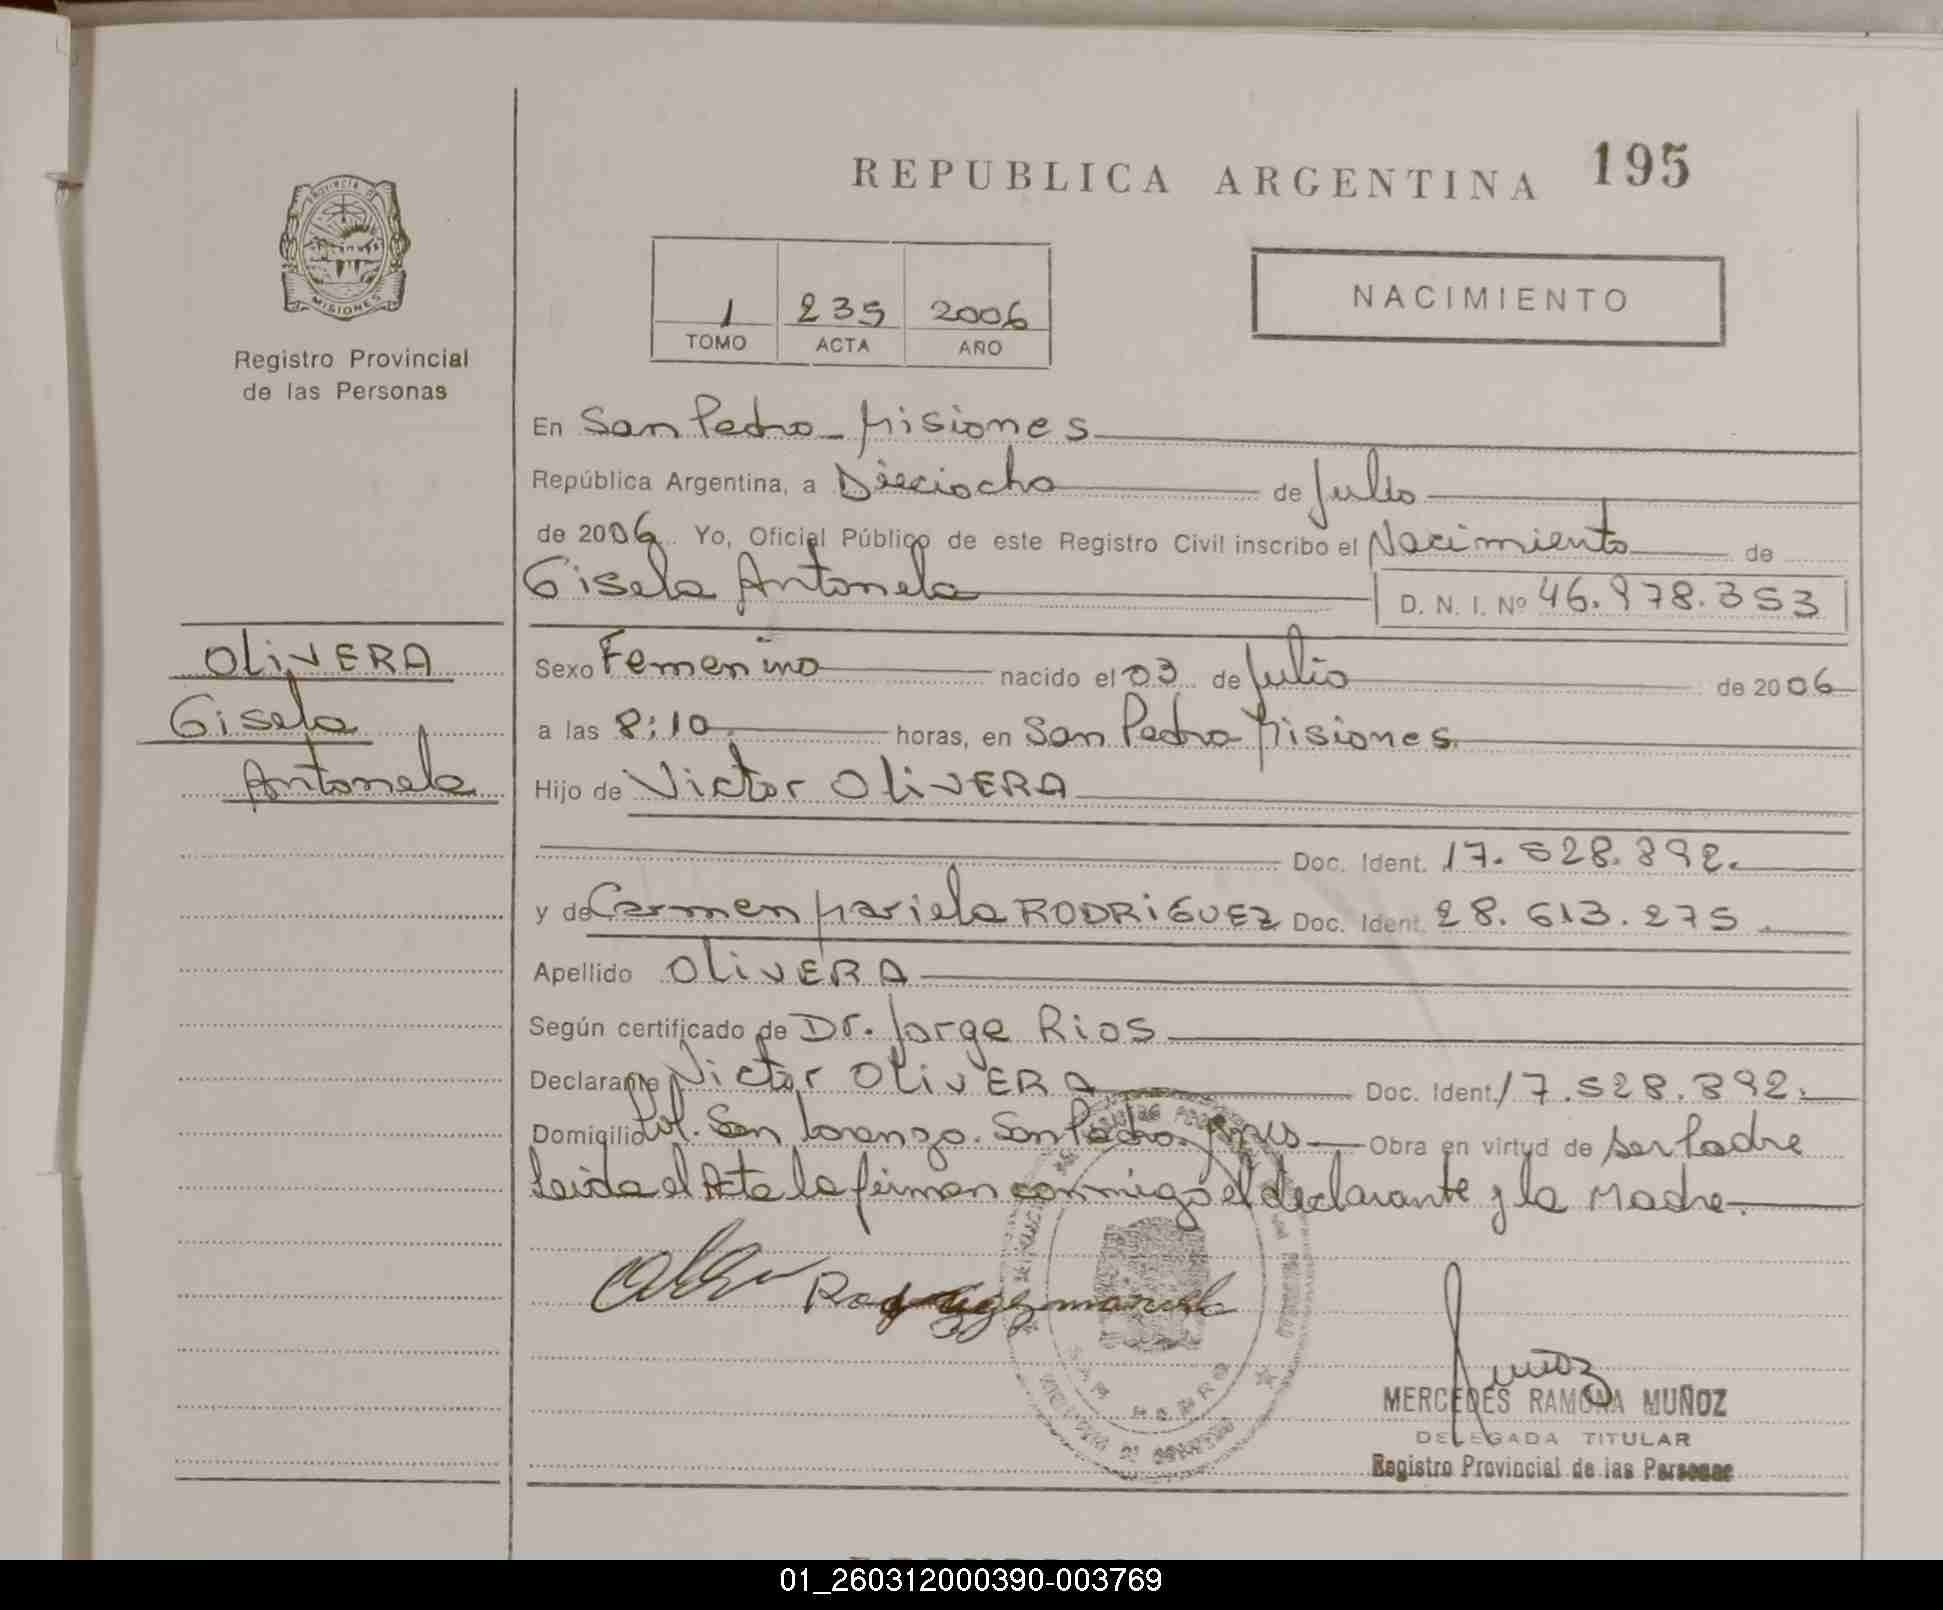 REPUBLICA ARGENTINA 195
PROVINCIA DE
MISIONES
Registro Provincial
de las Personas
1 235 2006
TOMO ACTA AÑO
NACIMIENTO
En San Pedro - Misiones
República Argentina, a Dieciocho de Julio
de 2006 Yo, Oficial Público de este Registro Civil inscribo el Nacimiento de
Gisela Antonela D. N. I. Nº 46.978.353
OLIVERA
Gisela
Antonela
Sexo Femenino nacido el 03 de Julio de 2006
a las 8:10 horas, en San Pedro Misiones
Hijo de Victor OLIVERA
Doc. Ident. 17.528.392.
y de Carmen Mariela RODRIGUEZ Doc. Ident. 28.613.275.
Apellido OLIVERA
Según certificado de Dr. Jorge Rios
Declarante Victor OLIVERA Doc. Ident. 17.528.392.
Domicilio San Lorenzo. San Pedro. Mnes Obra en virtud de ser Padre
Leida el Acta la firman conmigo el declarante y la Madre.
SAN PEDRO
Muñoz
MERCEDES RAMONA MUÑOZ
DELEGADA TITULAR
Registro Provincial de las Personas
01_260312000390-003769